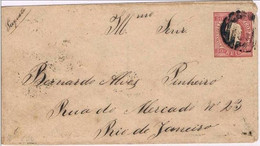 Illmo Snr
Bernardo Alves Pinheiro
Rua do Mercado No 23
Rio de Janeiro